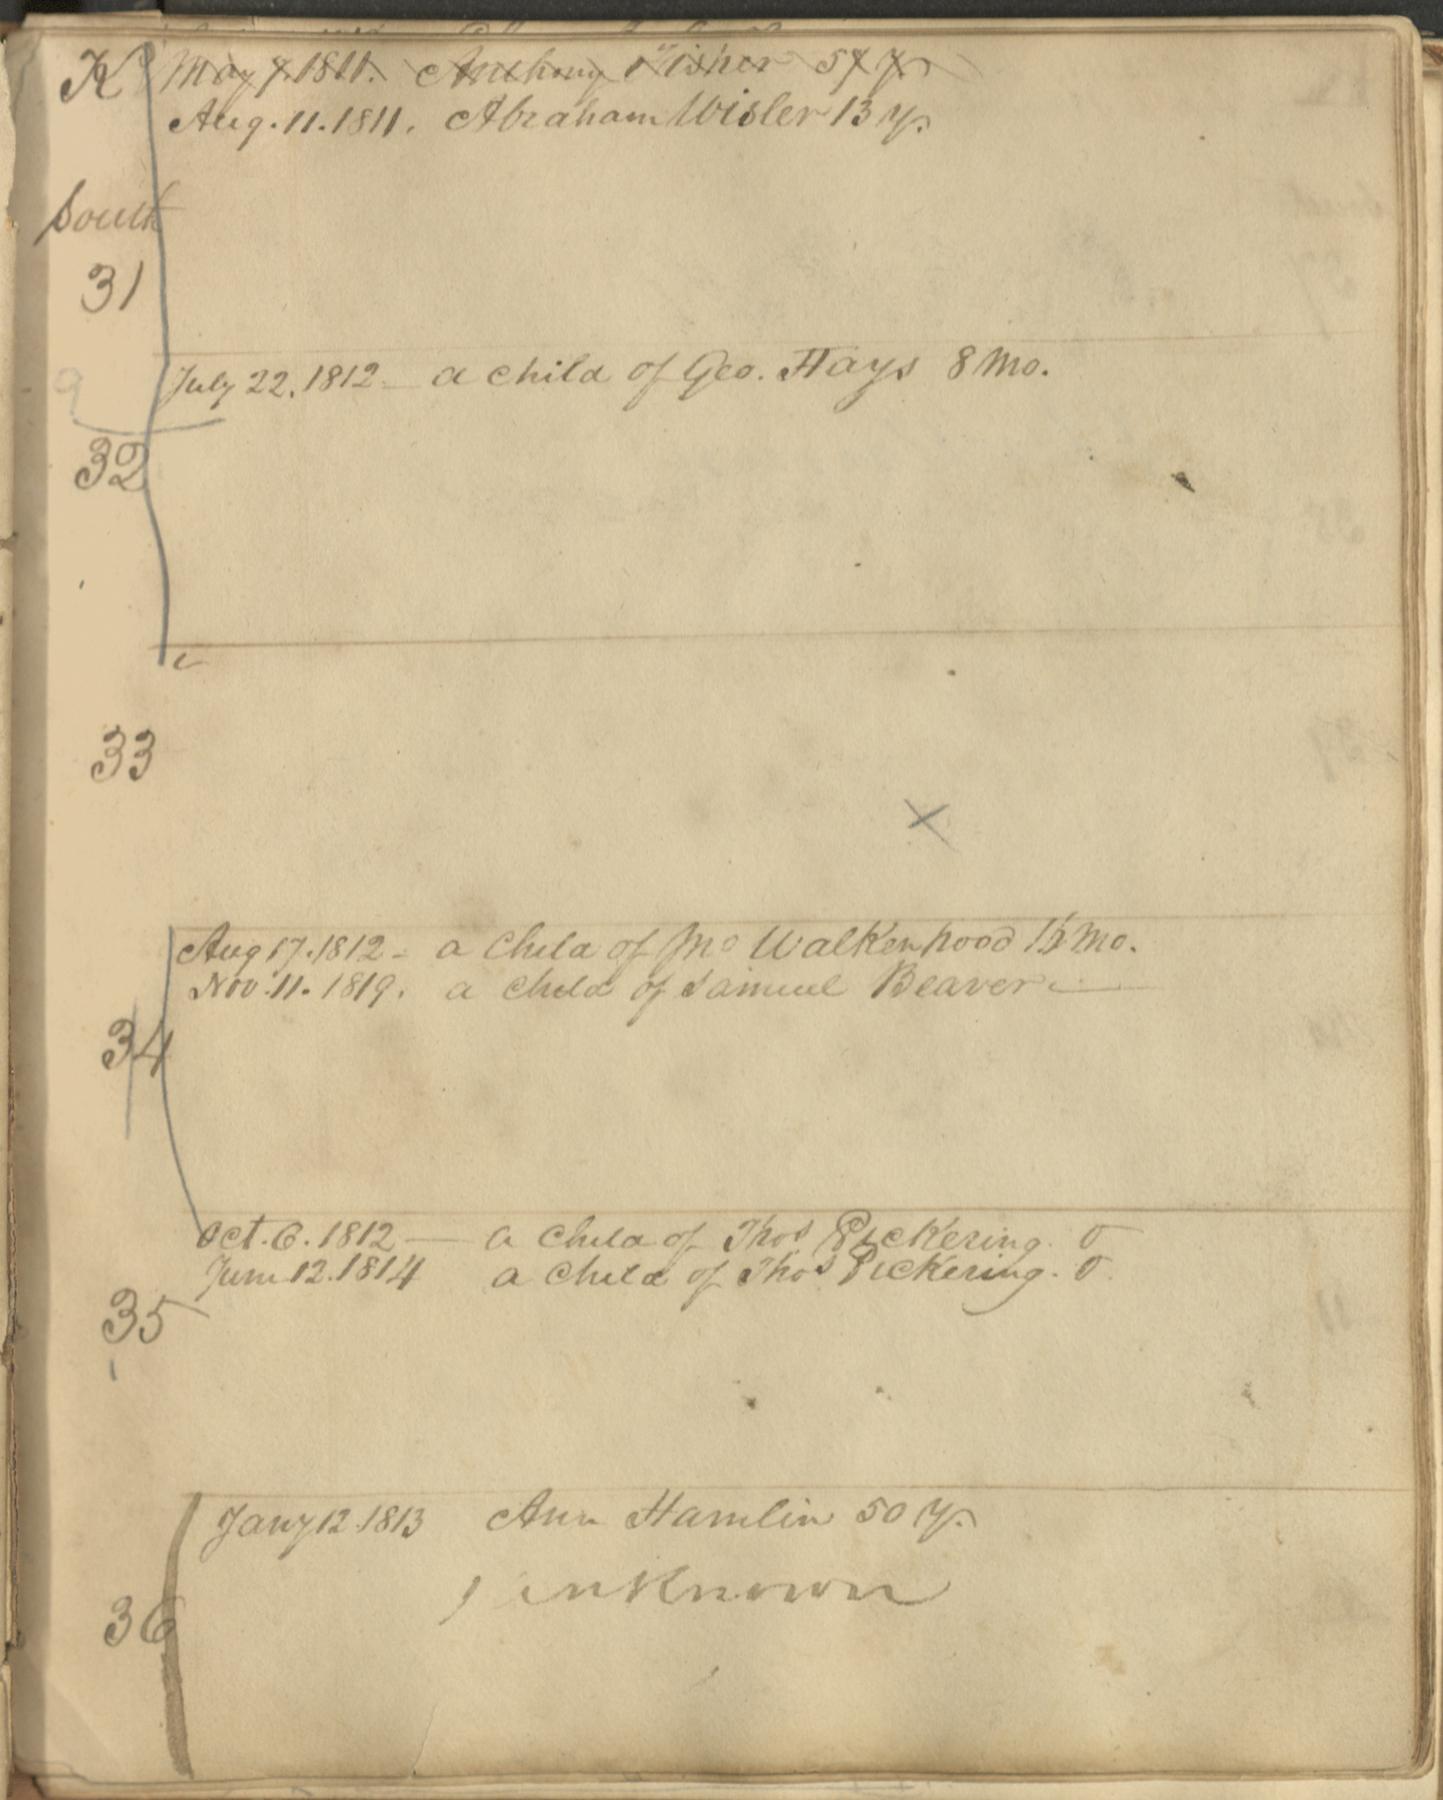 K May 7. 1811. Anthony Fisher 57 y.
Aug. 11. 1811. Abraham Wisler 13 y.
South
31
July 22. 1812 – a child of Geo. Hays 8 Mo.
9
32
33
x
Aug 17. 1812 – a Child of Walkenhood Mo.
Nov. 11. 1819. a Child of Samuel Beaver —
34
Oct. 6. 1812 — a Child of Thos Pickering. 0
June 12. 1814 a Child of Thos Pickering. 0
35
Jany 12. 1813 Ann Hamlin 50 y.
1 unknown
36